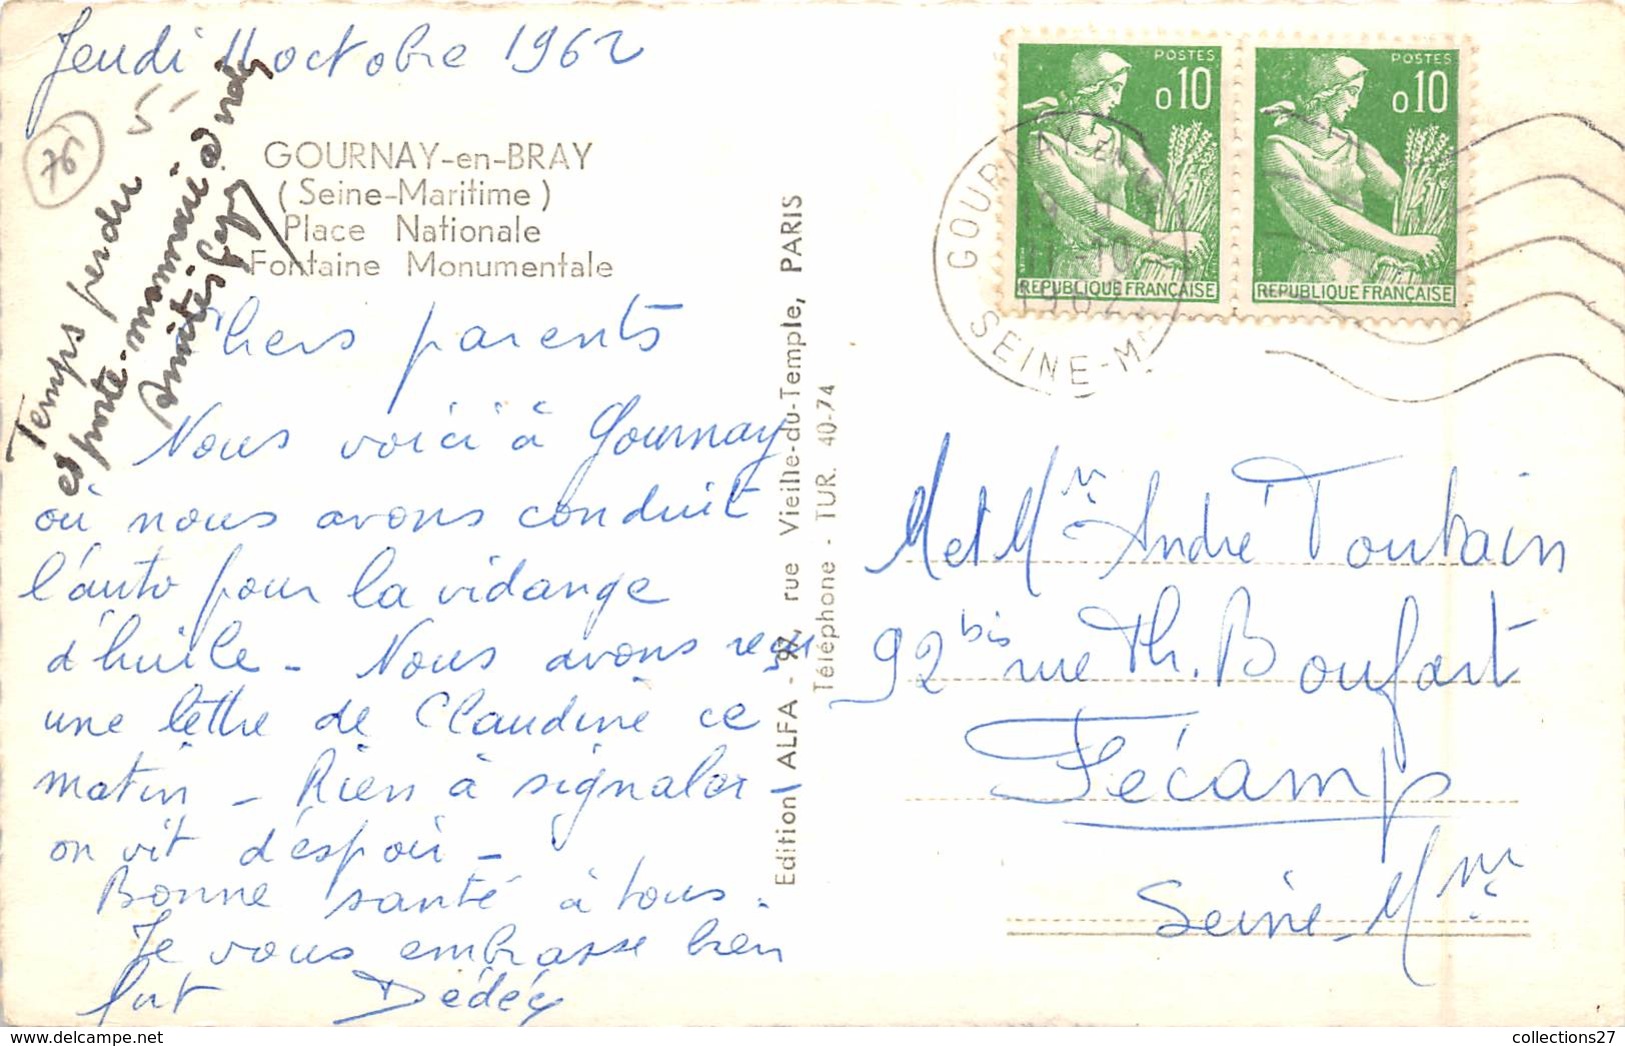 Jeudi 11 octobre 1962
76
GOURNAY-en-BRAY
(Seine-Maritime)
Place Nationale
Fontaine Monumentale
Temps perdu
et porte-monnaie à
Amitiés
Chers parents
Nous voici à Gournay
où nous avons conduit
l'auto pour la vidange
d'huile - Nous avons reçu
une lettre de Claudine ce
matin - Rien à signaler -
on vit d'espoir -
Bonne santé à tous.
Je vous embrasse bien
fort Dédée
Edition ALFA - 97, rue Vieille-du-Temple, PARIS
Téléphone - TUR. 40-74
POSTES
0,10
REPUBLIQUE FRANÇAISE
POSTES
0,10
REPUBLIQUE FRANÇAISE
GOURNAY-EN-
11-10
1962
SEINE-Me
M et Mme André Toutain
92 bis rue Th. Boufart
Fécamp
Seine-Mme
collections27